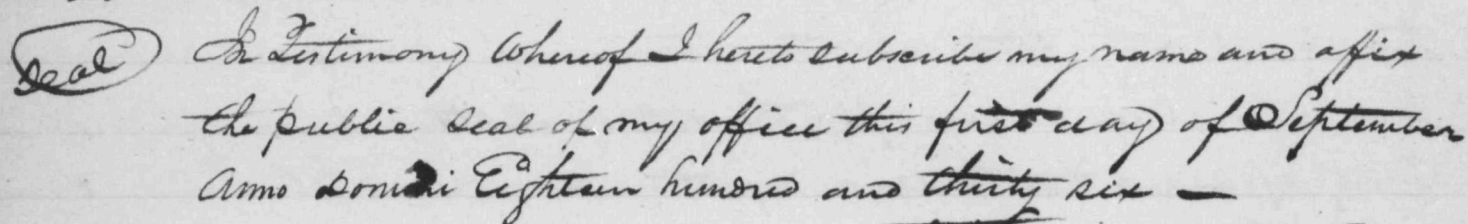 Seal In Testimony Whereof I hereto subscribe my name and affix
the public seal of my office this first day of September
Anno Domini Eighteen hundred and thirty six —